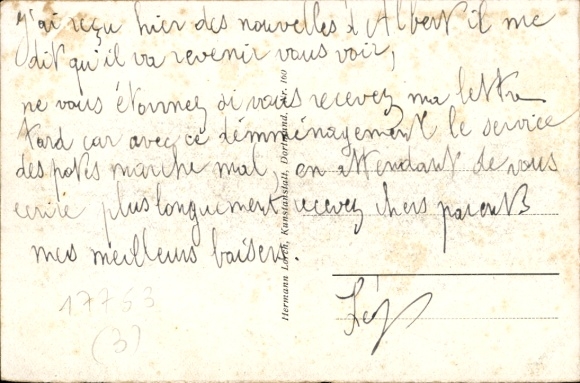 J'ai reçu hier des nouvelles d'Albert il me
dit qu'il va revenir vous voir,
ne vous étonnez si vous recevez ma lettre
tard car avec ce démménagement le service
des postes marche mal, en attendant de vous
ecrire plus longuement recevez chers parents
mes meilleurs baisers.
Hermann Lorch, Kunstanstalt, Dortmund. Nr. 163
17753
(3)